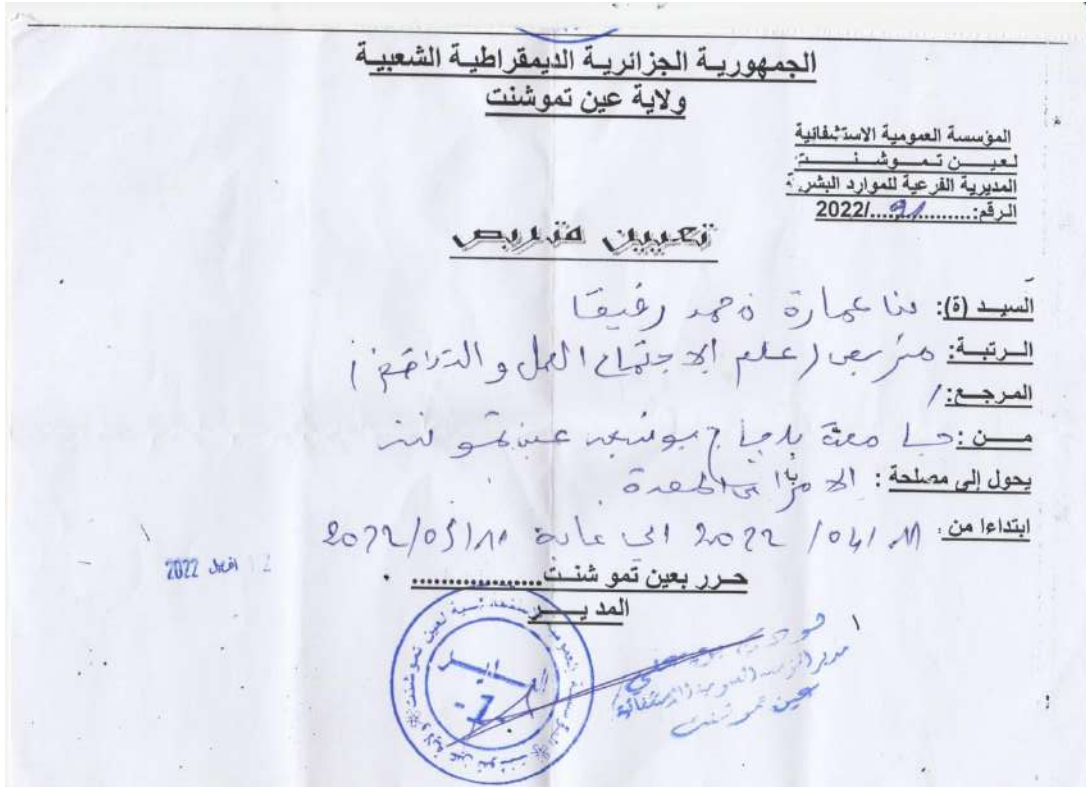 الجمهورية الجزائرية الديمقراطية الشعبية
ولاية عين تموشنت
المؤسسة العمومية الاستشفائية
لعين تموشنت
المديرية الفرعية للموارد البشرية
الرقم:........91......../2022
تعيين متربص
السيد (ة): عمارة رفيقا
الرتبة: متربص (علم الاجتماع العمل و التنظيم)
المرجع: /
من: جامعة بلحاج بوشعيب عين تموشنت
يحول إلى مصلحة: الأمراض المعدية
ابتداءا من: 11/04/2022 الى غاية 11/05/2022
12 أفريل 2022
حرر بعين تموشنت..................
المديــر
المدير
-1-
مدير المؤسسة العمومية الاستشفائية
عين تموشنت